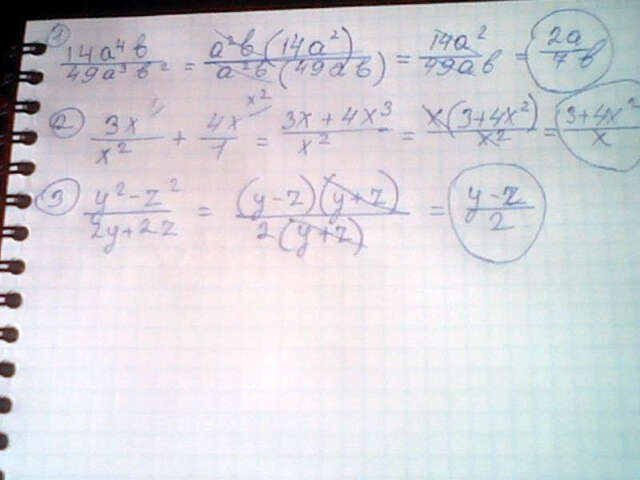 ① 14a⁴b / 49a³b² = a²b(14a²) / a²b(49ab) = 14a² / 49ab = 2a / 7b
② 3x / x² + 4x / 1 = 3x + 4x³ / x² = x(3+4x²) / x² = 3+4x² / x
③ y² - z² / 2y+2z = (y-z)(y+z) / 2(y+z) = y-z / 2